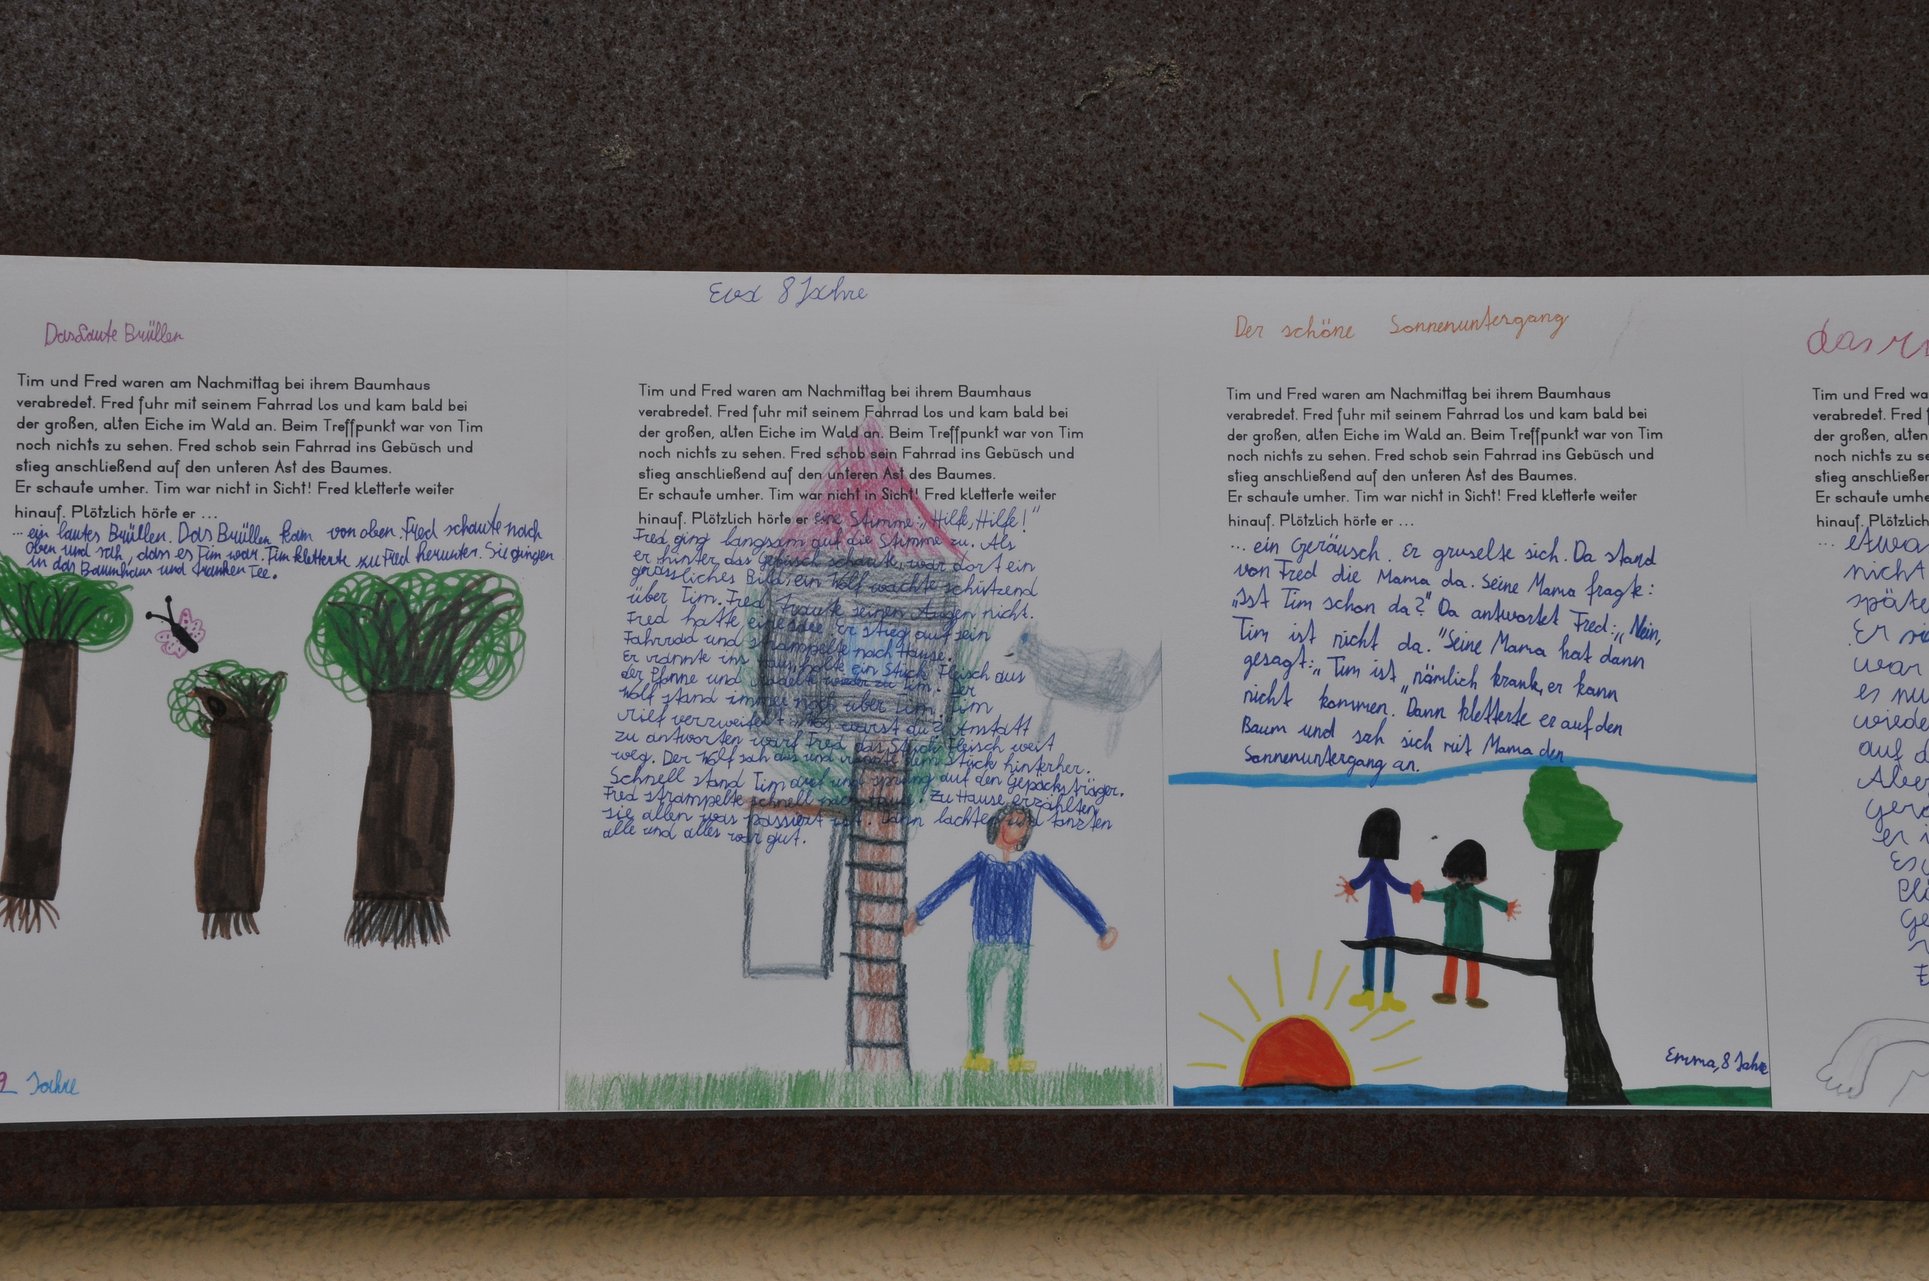 Das Laute Brüllen
Tim und Fred waren am Nachmittag bei ihrem Baumhaus
verabredet. Fred fuhr mit seinem Fahrrad los und kam bald bei
der großen, alten Eiche im Wald an. Beim Treffpunkt war von Tim
noch nichts zu sehen. Fred schob sein Fahrrad ins Gebüsch und
stieg anschließend auf den unteren Ast des Baumes.
Er schaute umher. Tim war nicht in Sicht! Fred kletterte weiter
hinauf. Plötzlich hörte er ...
... ein lautes Brüllen. Das Brüllen kam von oben. Fred schaute nach
oben und sah, dass es Tim war. Tim kletterte zu Fred herunter. Sie gingen
in das Baumhaus und tranken Tee.
Jahre
Eva 8 Jahre
Tim und Fred waren am Nachmittag bei ihrem Baumhaus
verabredet. Fred fuhr mit seinem Fahrrad los und kam bald bei
der großen, alten Eiche im Wald an. Beim Treffpunkt war von Tim
noch nichts zu sehen. Fred schob sein Fahrrad ins Gebüsch und
stieg anschließend auf den unteren Ast des Baumes.
Er schaute umher. Tim war nicht in Sicht! Fred kletterte weiter
hinauf. Plötzlich hörte er eine Stimme: „Hilfe, Hilfe!“
Fred ging langsam auf die Stimme zu. Als
er hinter das Gebüsch schaute, war dort ein
grässliches Bild, ein Wolf wachte schützend
über Tim. Fred traute seinen Augen nicht.
Fred hatte eine Idee. Er stieg auf sein
Fahrrad und strampelte nach Hause.
Er rannte ins Haus, holte ein Stück Fleisch aus
der Pfanne und radelte wieder zu Tim. Der
Wolf stand immer noch über Tim. Tim
rief verzweifelt: „Wo warst du?“ Anstatt
zu antworten warf Fred das Stück Fleisch weit
weg. Der Wolf sah das und rannte dem Stück hinterher.
Schnell stand Tim auf und sprang auf den Gepäcksträger.
Fred strampelte schnell nach Hause. Zu Hause erzählten
sie allen was passiert ist. Dann lachten und tanzten
alle und alles war gut.
Der schöne Sonnenuntergang
Tim und Fred waren am Nachmittag bei ihrem Baumhaus
verabredet. Fred fuhr mit seinem Fahrrad los und kam bald bei
der großen, alten Eiche im Wald an. Beim Treffpunkt war von Tim
noch nichts zu sehen. Fred schob sein Fahrrad ins Gebüsch und
stieg anschließend auf den unteren Ast des Baumes.
Er schaute umher. Tim war nicht in Sicht! Fred kletterte weiter
hinauf. Plötzlich hörte er ...
... ein Geräusch. Er gruselte sich. Da stand
von Fred die Mama da. Seine Mama fragte:
„Ist Tim schon da?“ Da antwortet Fred: „Nein,
Tim ist nicht da.“ Seine Mama hat dann
gesagt: „Tim ist nämlich krank, er kann
nicht kommen.“ Dann kletterte er auf den
Baum und sah sich mit Mama den
Sonnenuntergang an.
Emma, 8 Jahre
das
Tim und Fred wa
verabredet. Fred
der großen, alten
noch nichts zu se
stieg anschließend
Er schaute umher
hinauf. Plötzlich
... etwa
nicht
späte
Er
war
es nu
wiede
auf d
Aber
er i